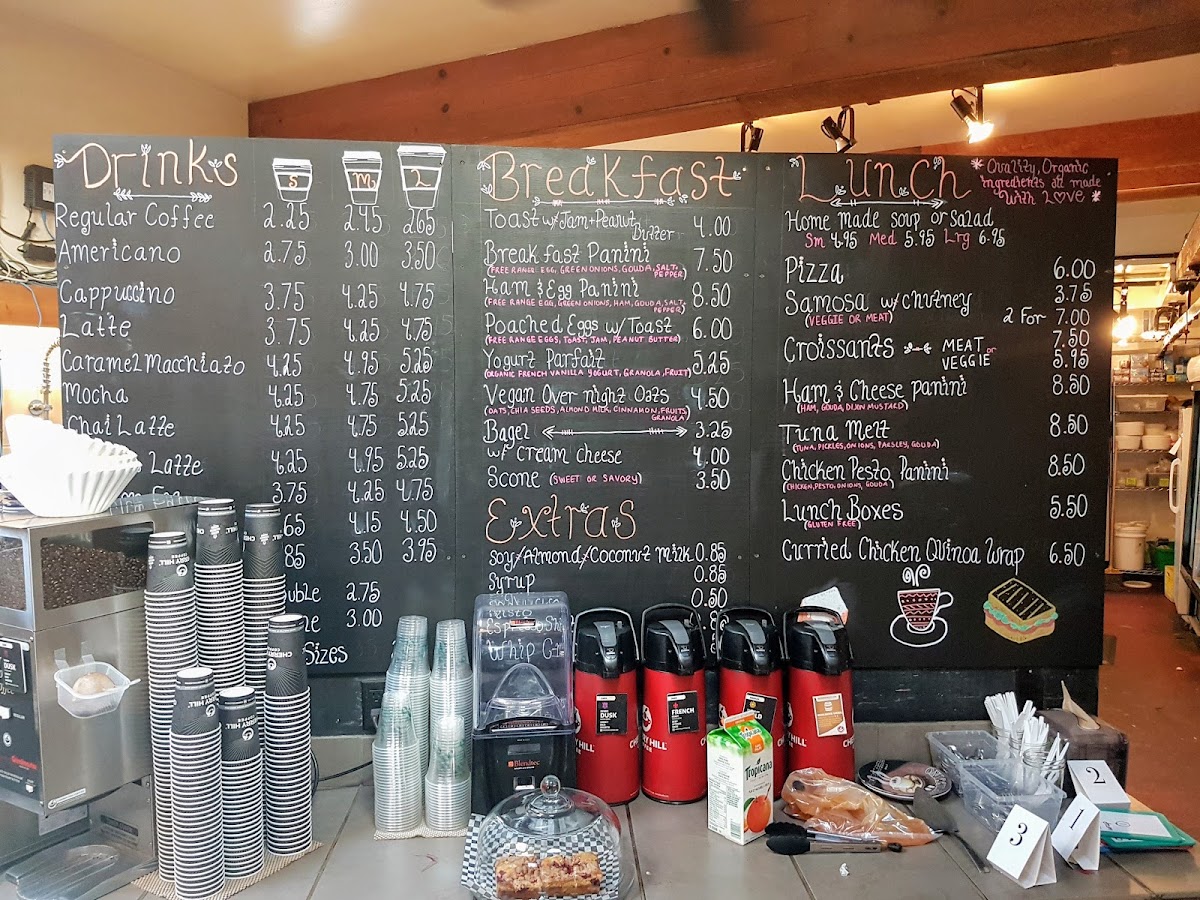 Drinks
S M L
Regular Coffee 2.25 2.45 2.65
Americano 2.75 3.00 3.50
Cappuccino 3.75 4.25 4.75
Latte 3.75 4.25 4.75
Caramel Macchiato 4.25 4.95 5.25
Mocha 4.25 4.75 5.25
Chai Latte 4.25 4.75 5.25
Latte 4.25 4.95 5.25
3.75 4.25 4.75
65 4.15 4.50
85 3.50 3.95
uble 2.75
3.00
Sizes
Breakfast
Toast w/ Jam + Peanut Butter 4.00
Breakfast Panini 7.50
(FREE RANGE EGG, GREEN ONIONS, GOUDA, SALT, PEPPER)
Ham & Egg Panini 8.50
(FREE RANGE EGG, GREEN ONIONS, HAM, GOUDA, SALT, PEPPER)
Poached Eggs w/ Toast 6.00
(FREE RANGE EGGS, TOAST, JAM, PEANUT BUTTER)
Yogurt Parfait 5.25
(ORGANIC FRENCH VANILLA YOGURT, GRANOLA, FRUIT)
Vegan Over night Oats 4.50
(OATS, CHIA SEEDS, ALMOND MILK, CINNAMON, FRUITS, GRANOLA)
Bagel 3.25
w/ cream cheese 4.00
Scone (SWEET OR SAVORY) 3.50
Extras
Soy/Almond/Coconut Milk 0.85
Syrup 0.85
0.50
Espresso Sh
Whip Cr
Lunch
*Quality, Organic
ingredients all made
with Love *
Home made soup or Salad
Sm 4.95 Med 5.95 Lrg 6.95
Pizza 6.00
Samosa w/ chutney 3.75
(VEGGIE OR MEAT) 2 For 7.00
Croissants MEAT 7.50
or VEGGIE 5.95
Ham & Cheese panini 8.50
(HAM, GOUDA, DIJON MUSTARD)
Tuna Melt 8.50
(TUNA, PICKLES, ONIONS, PARSLEY, GOUDA)
Chicken Pesto Panini 8.50
(CHICKEN, PESTO, ONIONS, GOUDA)
Lunch Boxes 5.50
(GLUTEN FREE)
Curried Chicken Quinoa Wrap 6.50
PANINI
DUSK
DUSK
FRENCH
CHERRY HILL
Blendtec
Tropicana
2
1
3